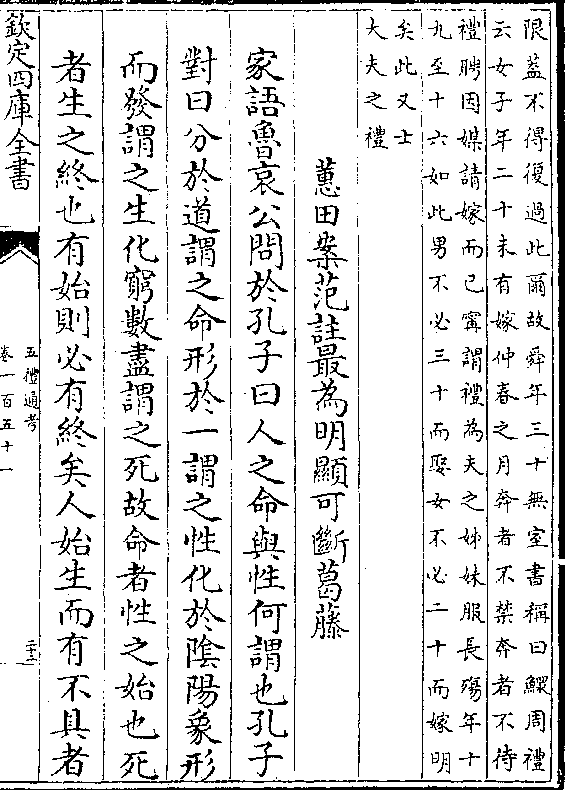 限蓋不得復過此爾故舜年三十無室書稱曰鰥周禮
云女子年二十未有嫁仲春之月奔者不禁奔者不待
禮聘因媒請嫁而已甯謂禮為夫之姊妹服長殤年十
九至十六如此男不必三十而娶女不必二十而嫁明
矣此又士
大夫之禮
蕙田案范註最為明顯可斷葛藤
家語魯哀公問於孔子曰人之命與性何謂也孔子
對曰分於道謂之命形於一謂之性化於陰陽象形
而發謂之生化窮數盡謂之死故命者性之始也死
者生之終也有始則必有終矣人始生而有不具者
欽定四庫全書
五禮通考
卷一百五十一
二十三